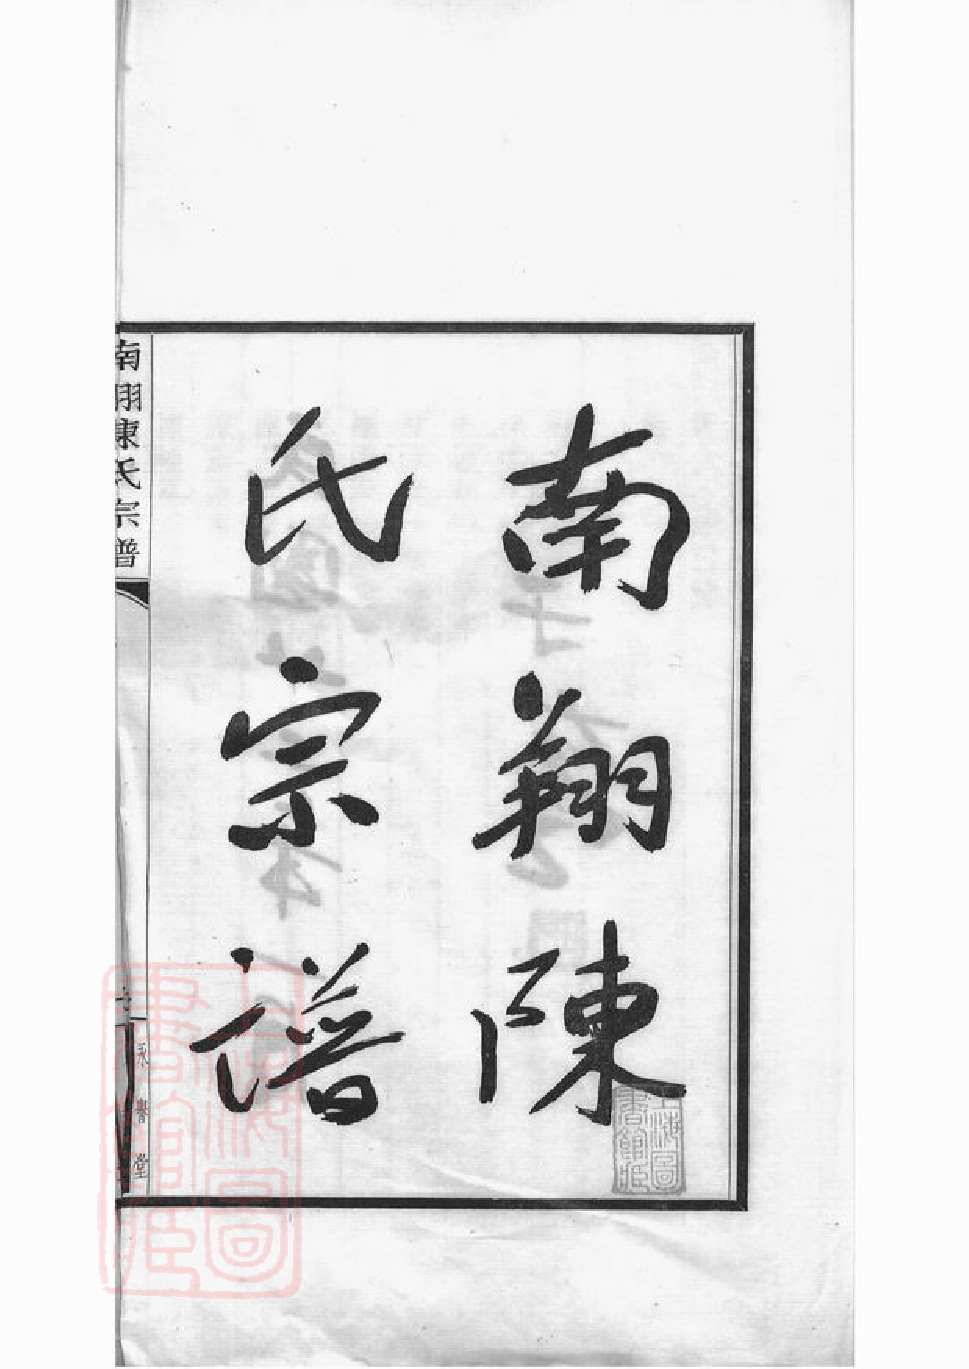 南翔陳
氏宗譜
南翔陳氏宗譜
永譽堂
上海圖
書館藏
上海圖
書館藏